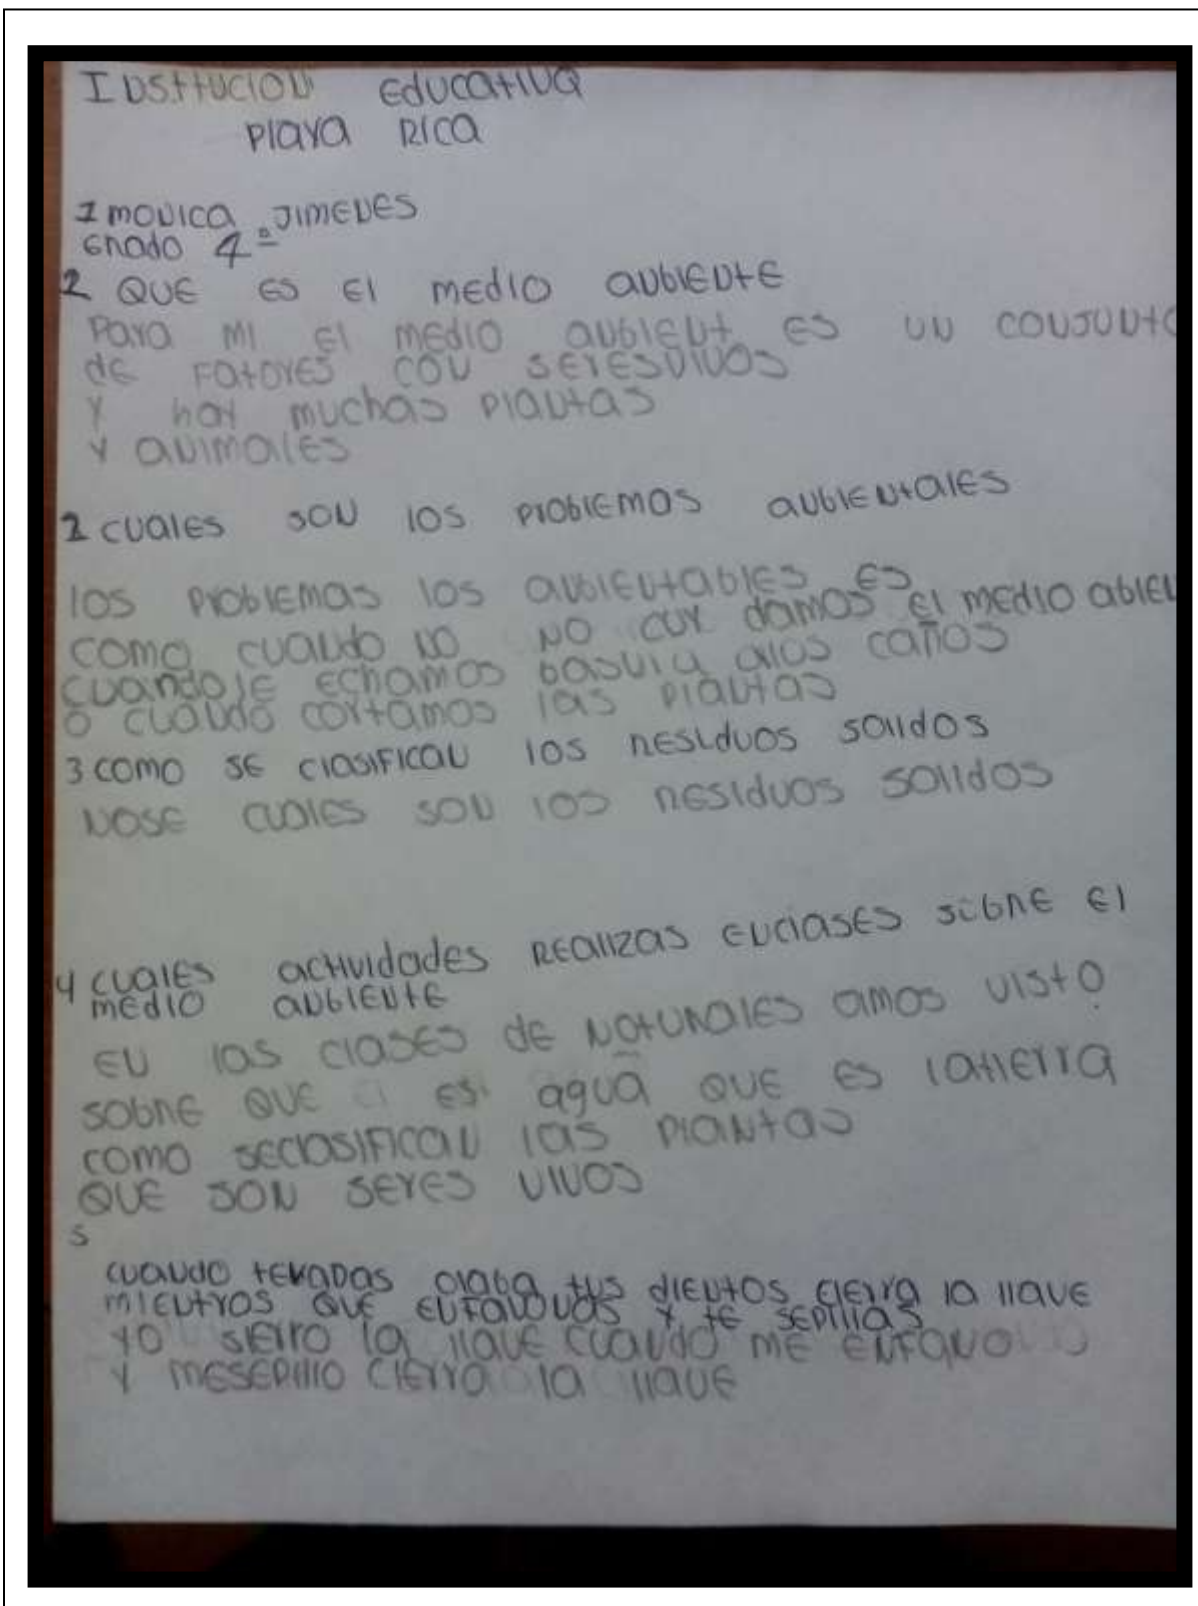 INStitUCION EdUCAtiVA
PlAYA RICA
1 MONICA JIMENES
GRAdO 4º
2 QUE ES El MEdIO ANbIENtE
PARA MI El MEdIO ANbIENt ES UN CONJUNtO
dE FAtORES CON SERESVIVOS
Y hAY MUChAS PlANtAS
Y ANIMAlES
2 CUAlES SON lOS PROblEMAS ANbIENtAlES
lOS PROblEMAS lOS ANbIENtAblES ES
COMO CUANdO NO NO CUY dAMOS El MEdIO AbIEN
CUANdOlE EChAMOS bASURA AlOS CAÑOS
O CUANdO CORtAMOS lAS PlANtAS
3 COMO SE ClASIFICAN lOS RESIdUOS SOlIdOS
NOSE CUAlES SON lOS RESIdUOS SOlIdOS
4 CUAlES ACtIVIdAdES REAlIZAS ENClASES SObRE El
MEdIO ANbIENtE
EN lAS ClASES dE NAtURAlES AMOS VIStO
SObRE QUE ES AgUA QUE ES lAtIERRA
COMO SEClASIFICAN lAS PlANtAS
QUE SON SERES VIVOS
5
CUANdO tUS dIENtOS CIERRA lA llAVE
MIENtROS QUE Y tE SEPIllAS
YO SIERRO lA llAVE CUANdO ME ENFAVO
Y MESEPIllO CIERRA lA llAVE